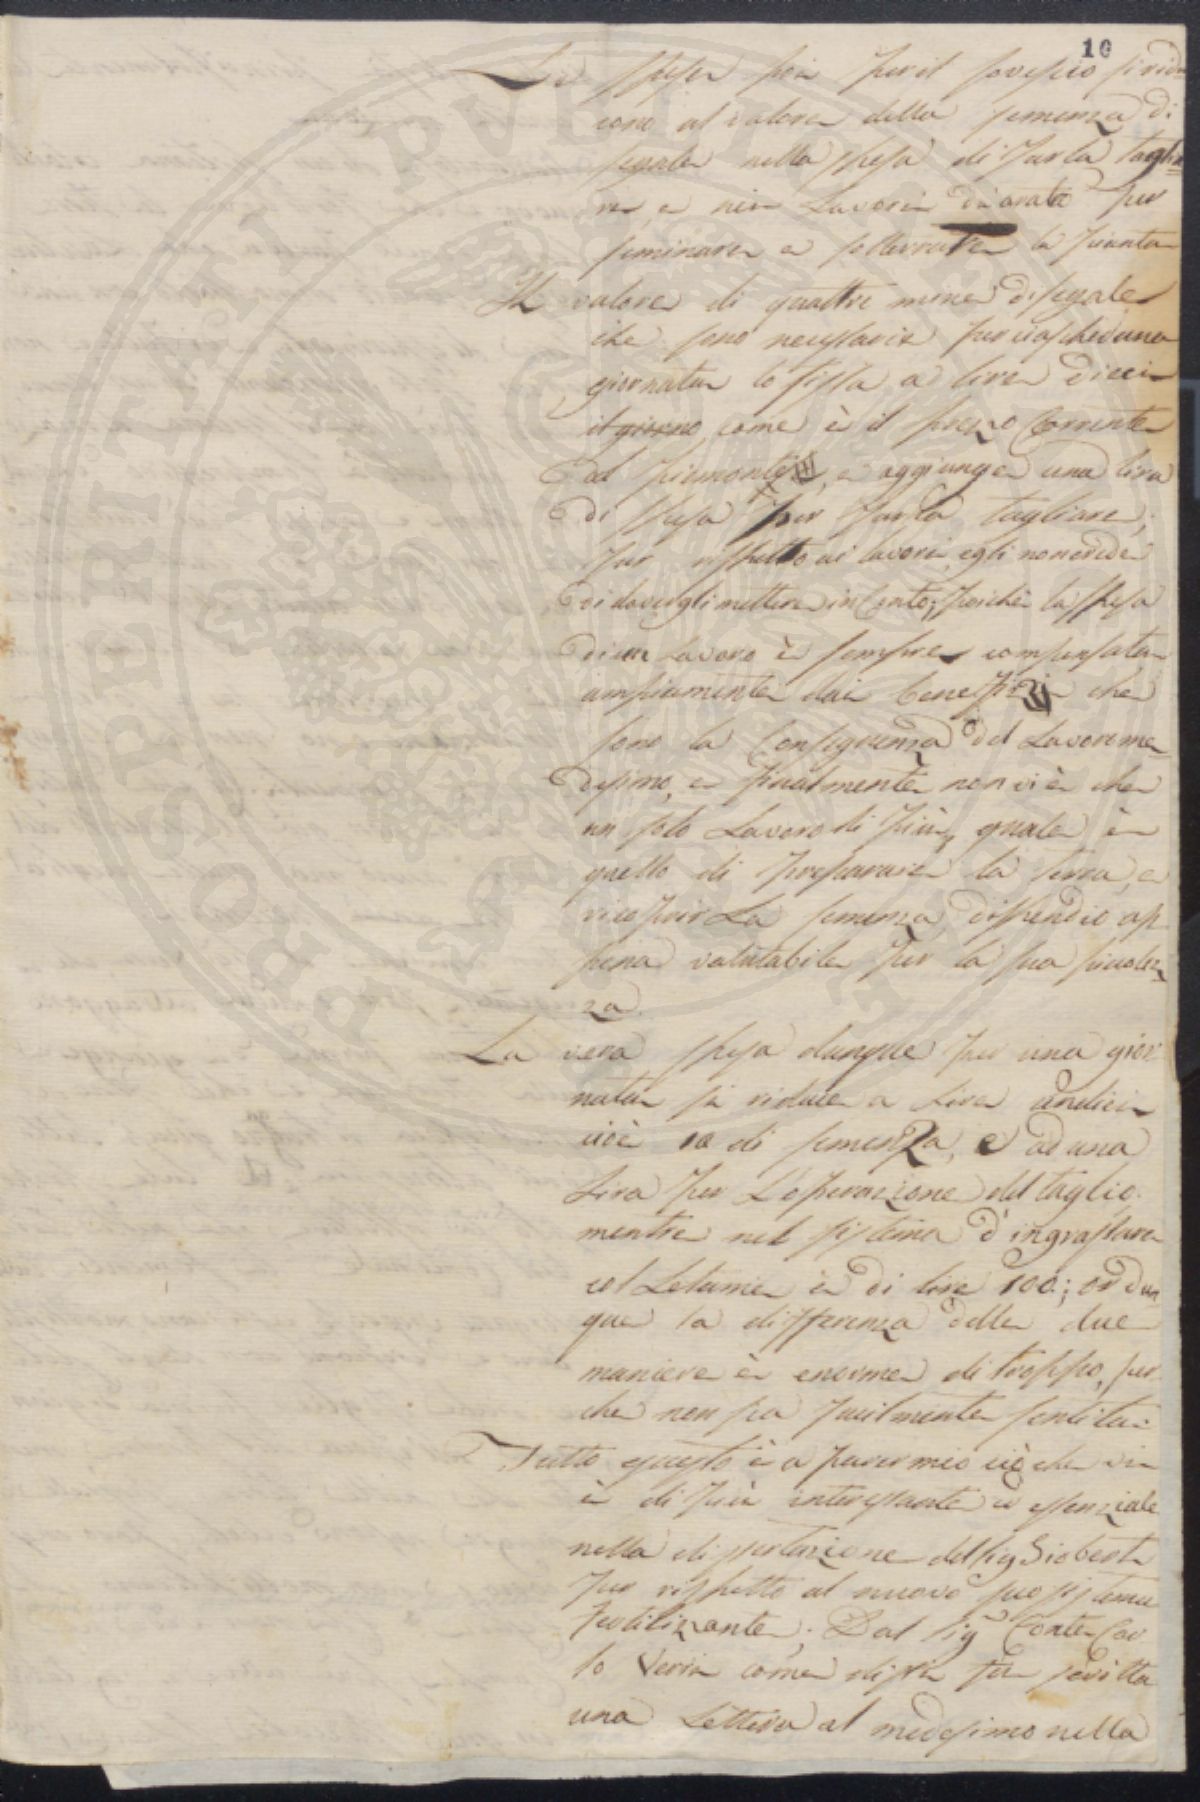 10
Le spese poi per il sovescio si ridu
cono al valore della semenza di
segale nella spesa di farla taglia=
re, e nei Lavori di aratr per
seminare e sotterrare la pianta
Il valore di quattro mine di segale
che sono necessarie per ciascheduna
giornata lo fissa a lire dieci
il giorno come è il prezzo Corrente
del piemonte, e aggiunge una lira
di spesa per farla tagliare;
per rispetto ai lavori egli non crede
di dovergli mettere in Conto; poichè la spesa
di un Lavoro è sempre compensata
ampiamente dai benefizi che
sono la Conseguenza del Lavoro me
desimo, e finalmente non vi è che
un solo Lavoro di più, quale è
quello di preparare la terra, e
ricoprir La semenza, dispendio ap
pena valutabile per la sua picolez
za.
La vera spesa dunque per una gior
nata si riduce a Lire undici
cioè 10 di semenza, e ad una
Lira per L'operazione del taglio.
mentre nel sistema d'ingrassare
col Letame è di lire 100.; or dun
que la differenza delle due
maniere è enorme di troppo, per
che non sia facilmente sentita.
Tutto questo è a parer mio ciò che vi
è di più interessante ed essenziale
nella dissertazione del sig Giobert
per rispetto al nuovo suo sistema
fertilizzante. Dal sig.r Conte Car
lo Verri come dissi fu scritta
una Lettera al medesimo nella
PROSPERITATI PVBLICAE